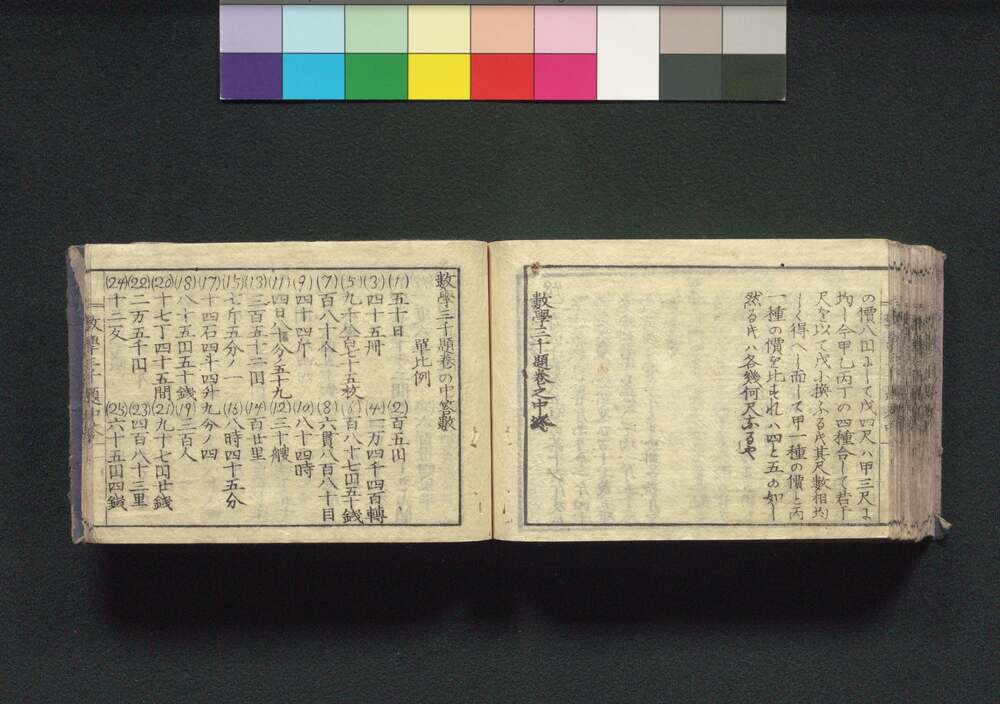 の價八円ニして戊四尺ハ甲三尺ニ
均し今甲乙丙丁の四種合して若干
尺を以て戊ニ換ふる時其尺數相均
しく得べし而して甲一種の價と丙
一種の價を比すれハ四と五の如し
然る時ハ各幾何尺なるや
數學三千題卷之中終
數學三千題卷の中答數
單比例
(1) 五十日 (2) 百五円
(3) 四十五冊 (4) 一万四千四百轉
(5) 九千八百七十五枚 (6) 百八十七円五十錢
(7) 百八十个 (8) 六貫八百八十目
(9) 四十四斤 (10) 八十四時
(11) 四日八十分五十九 (12) 三十艘
(13) 三百五十二円 (14) 百廿里
(15) 七斤五分ノ一 (16) 八時四十五分
(17) 十四石四斗四升九分ノ四
(18) 八十五円五十錢 (19) 三百人
(20) 十七丁四十五間 (21) 九十七円廿錢
(22) 二万五千円 (23) 四百八十三里
(24) 十二反 (25) 六十五円四錢